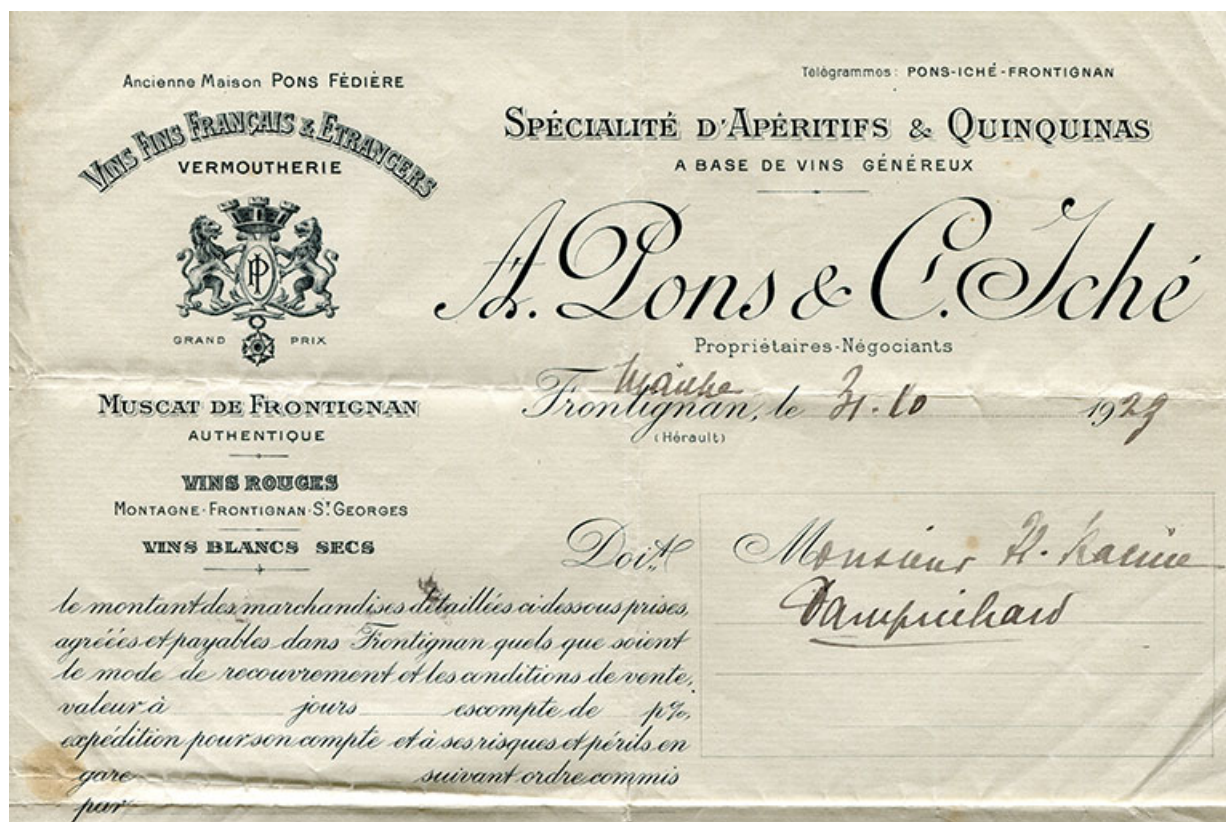 Ancienne Maison PONS FÉDIÈRE
VINS FINS FRANÇAIS & ETRANGERS
VERMOUTHERIE
GRAND PRIX
MUSCAT DE FRONTIGNAN
AUTHENTIQUE
VINS ROUGES
MONTAGNE-FRONTIGNAN-ST GEORGES
VINS BLANCS SECS
Télégrammes: PONS-ICHÉ-FRONTIGNAN
SPÉCIALITÉ D'APÉRITIFS & QUINQUINAS
A BASE DE VINS GÉNÉREUX
A. Pons & C. Iché
Propriétaires-Négociants
Maiche
Frontignan, le 31.10 1929
(Hérault)
Doit
Monsieur
Damprichard
le montant des marchandises détaillées ci-dessous prises,
agréées et payables dans Frontignan quels que soient
le mode de recouvrement et les conditions de vente,
valeur à jours escompte de p%,
expédition pour son compte et à ses risques et périls en
gare suivant ordre commis
par